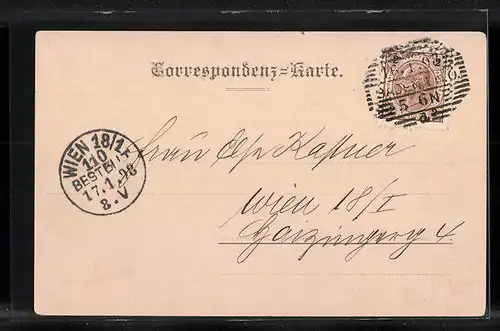 Correspondenz=Karte.
WIEN 18/1
110
BESTELLT
17.1.98
8.V
5 6N
Frau Kastner
Wien 18/I
4.